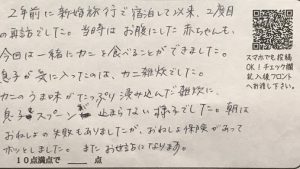 2年前に新婚旅行で宿泊して以来、2度目
の訪問でした。当時はお腹にした赤ちゃんも、
今回は一緒にカニを食べることができました。
息子が気に入ったのは、カニ雑炊でした。
カニのうま味がたっぷり染み込んだ雑炊に、
息子もスプーンが止まらない様子でした。朝は
おねしょの失敗もありましたが、おねしょ保険があって
ホッとしました。またお世話になります。
10点満点で 点
スマホでも投稿
OK!チェック欄
記入後フロント
へお渡し下さい。